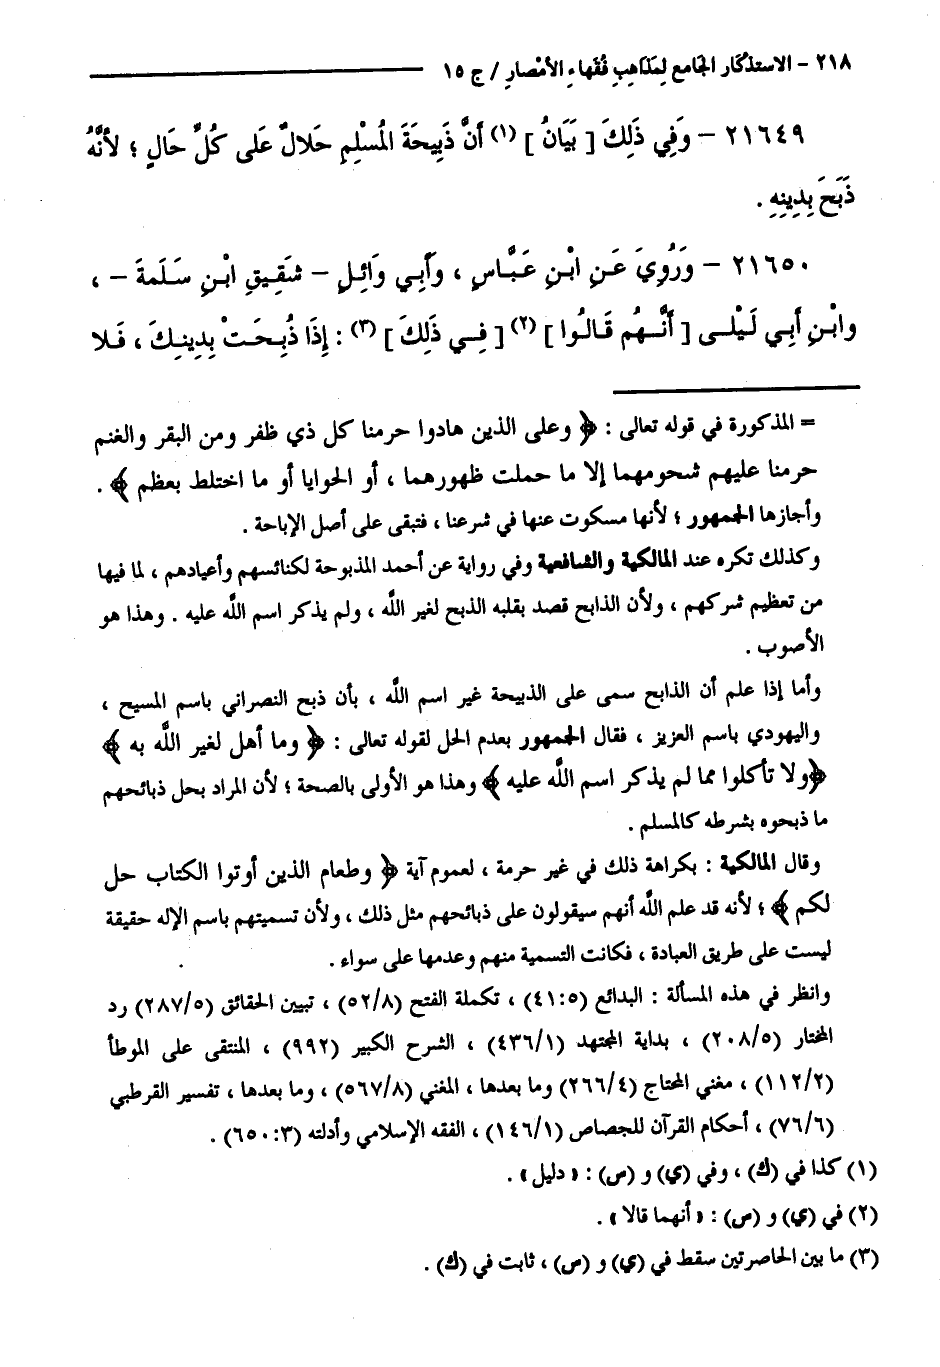 ٢١٨ - الاستذْكَار الجَامع لِمَذَاهِبِ فُقَهاءِ الأَمْصارِ / ج ١٥
٢١٦٤٩ - وَفِي ذَلِكَ [ بَيَانُ ] (١) أَنَّ ذَبِيحَةَ الْمُسْلِمِ حَلالٌ عَلى كُلِّ حَالٍ ؛ لأَنَّهُ
ذَبَحَ بِدِينِهِ .
٢١٦٥٠ - وَرُوِيَ عَنِ ابْنِ عَبَّاسٍ ، وَأَبِي وَائِلٍ - شَقِيقِ ابْنِ سَلَمةَ - ،
وابْنِ أَبِي لَيْلَى [ أَنَّهُم قَالُوا ] (٢) [ فِي ذَلِكَ ] (٣) : إِذَا ذُبِحَتْ بِدِينِكَ ، فَلا
= المذكورة في قوله تعالى : ﴿ وعلى الذين هادوا حرمنا كل ذي ظفر ومن البقر والغنم
حرمنا عليهم شحومهما إلا ما حملت ظهورهما ، أو الحوايا أو ما اختلط بعظم ﴾ .
وأجازها الجمهور ؛ لأنها مسكوت عنها في شرعنا ، فتبقى على أصل الإباحة .
وكذلك تكره عند المالكية والشافعية وفي رواية عن أحمد المذبوحة لكنائسهم وأعيادهم ، لما فيها
من تعظيم شركهم ، ولأن الذابح قصد بقلبه الذبح لغير اللَّه ، ولم يذكر اسم اللَّه عليه . وهذا هو
الأصوب .
وأما إذا علم أن الذابح سمى على الذبيحة غير اسم اللَّه ، بأن ذبح النصراني باسم المسيح ،
واليهودي باسم العزيز ، فقال الجمهور بعدم الحل لقوله تعالى : ﴿ وما أهل لغير اللَّه به ﴾
﴿ولا تأكلوا مما لم يذكر اسم اللَّه عليه ﴾ وهذا هو الأولى بالصحة ؛ لأن المراد بحل ذبائحهم
ما ذبحوه بشرطه كالمسلم .
وقال المالكية : بكراهة ذلك في غير حرمة ، لعموم آية ﴿ وطعام الذين أوتوا الكتاب حل
لكم ﴾ ؛ لأنه قد علم اللَّه أنهم سيقولون على ذبائحهم مثل ذلك ، ولأن تسميتهم باسم الإله حقيقة
ليست على طريق العبادة ، فكانت التسمية منهم وعدمها على سواء .
وانظر في هذه المسألة : البدائع (٤١:٥) ، تكملة الفتح (٥٢/٨) ، تبيين الحقائق (٢٨٧/٥) رد
المختار (٢٠٨/٥) ، بداية المجتهد (٤٣٦/١) ، الشرح الكبير (٩٩٢) ، المنتقى على الموطأ
(١١٢/٢) ، مغني المحتاج (٢٦٦/٤) وما بعدها ، المغني (٥٦٧/٨) ، وما بعدها ، تفسير القرطبي
(٧٦/٦) ، أحكام القرآن للجصاص (١٤٦/١) ، الفقه الإسلامي وأدلته (٦٥٠:٣) .
(١) كذا في (ك) ، وفي (ي) و (س) : « دليل » .
(٢) في (ي) و (س) : « أنهما قالا » .
(٣) ما بين الحاصرتين سقط في (ي) و (س) ، ثابت في (ك) .